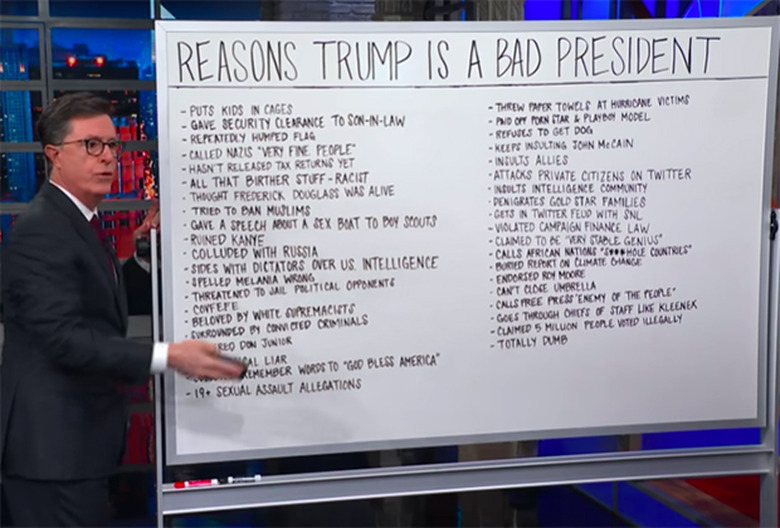 REASONS TRUMP IS A BAD PRESIDENT
- PUTS KIDS IN CAGES
- GAVE SECURITY CLEARANCE TO SON-IN-LAW
- REPEATEDLY HUMPED FLAG
- CALLED NAZIS "VERY FINE PEOPLE"
- HASN'T RELEASED TAX RETURNS YET
- ALL THAT BIRTHER STUFF - RACIST
- THOUGHT FREDERICK DOUGLASS WAS ALIVE
- TRIED TO BAN MUSLIMS
- GAVE A SPEECH ABOUT A SEX BOAT TO BOY SCOUTS
- RUINED KANYE
- COLLUDED WITH RUSSIA
- SIDES WITH DICTATORS OVER U.S. INTELLIGENCE
- SPELLED MELANIA WRONG
- THREATENED TO JAIL POLITICAL OPPONENTS
- COVFEFE
- BELOVED BY WHITE SUPREMACISTS
- SURROUNDED BY CONVICTED CRIMINALS
RED DON JUNIOR
LIAR
REMEMBER WORDS TO "GOD BLESS AMERICA"
- 19+ SEXUAL ASSAULT ALLEGATIONS
- THREW PAPER TOWELS AT HURRICANE VICTIMS
- PAID OFF PORN STAR & PLAYBOY MODEL
- REFUSES TO GET DOG
- KEEPS INSULTING JOHN McCAIN
- INSULTS ALLIES
- ATTACKS PRIVATE CITIZENS ON TWITTER
- INSULTS INTELLIGENCE COMMUNITY
- DENIGRATES GOLD STAR FAMILIES
- GETS IN TWITTER FEUD WITH SNL
- VIOLATED CAMPAIGN FINANCE LAW
- CLAIMED TO BE "VERY STABLE GENIUS"
- CALLS AFRICAN NATIONS "S***HOLE COUNTRIES"
- BURIED REPORT ON CLIMATE CHANGE
- ENDORSED ROY MOORE
- CAN'T CLOSE UMBRELLA
- CALLS FREE PRESS "ENEMY OF THE PEOPLE"
- GOES THROUGH CHIEFS OF STAFF LIKE KLEENEX
- CLAIMED 5 MILLION PEOPLE VOTED ILLEGALLY
- TOTALLY DUMB